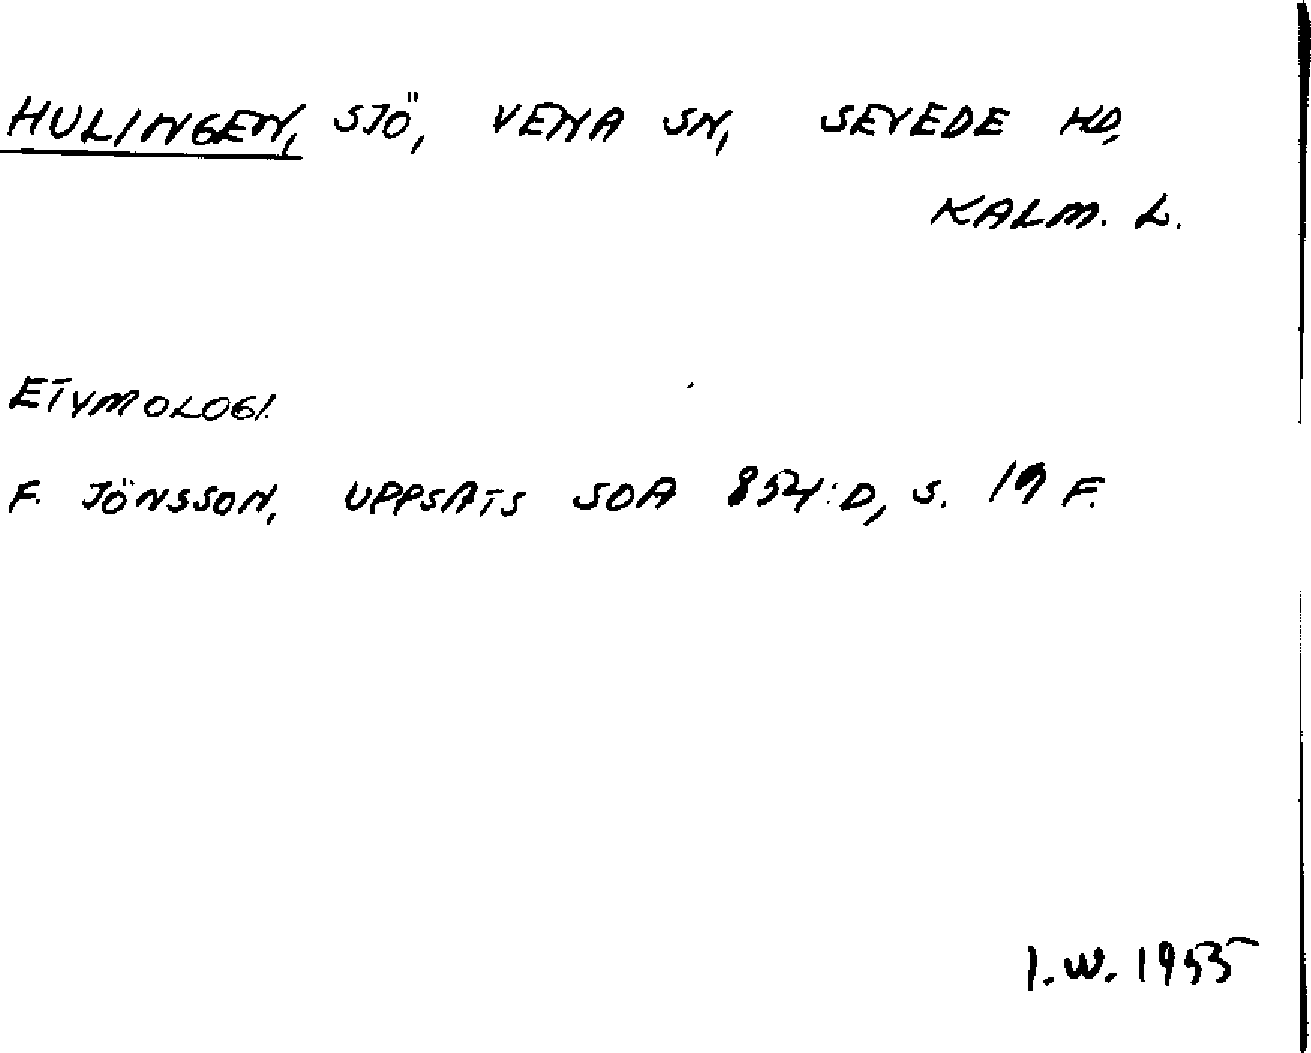 HULINGEN, SJÖ, VENA SN, SEVEDE HD,
KALM. L.
ETYMOLOGI.
F. JÖNSSON, UPPSATS SOA 854:D, S. 19 F.
I.W. 1955